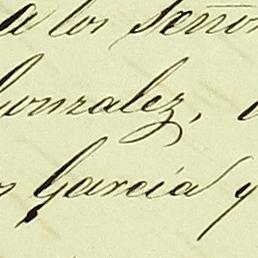 a los Señor
Gonzalez,
Garcia y